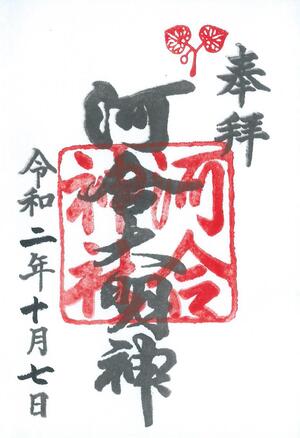 奉拝
河合大明神
河合
神社
令和二年十月七日